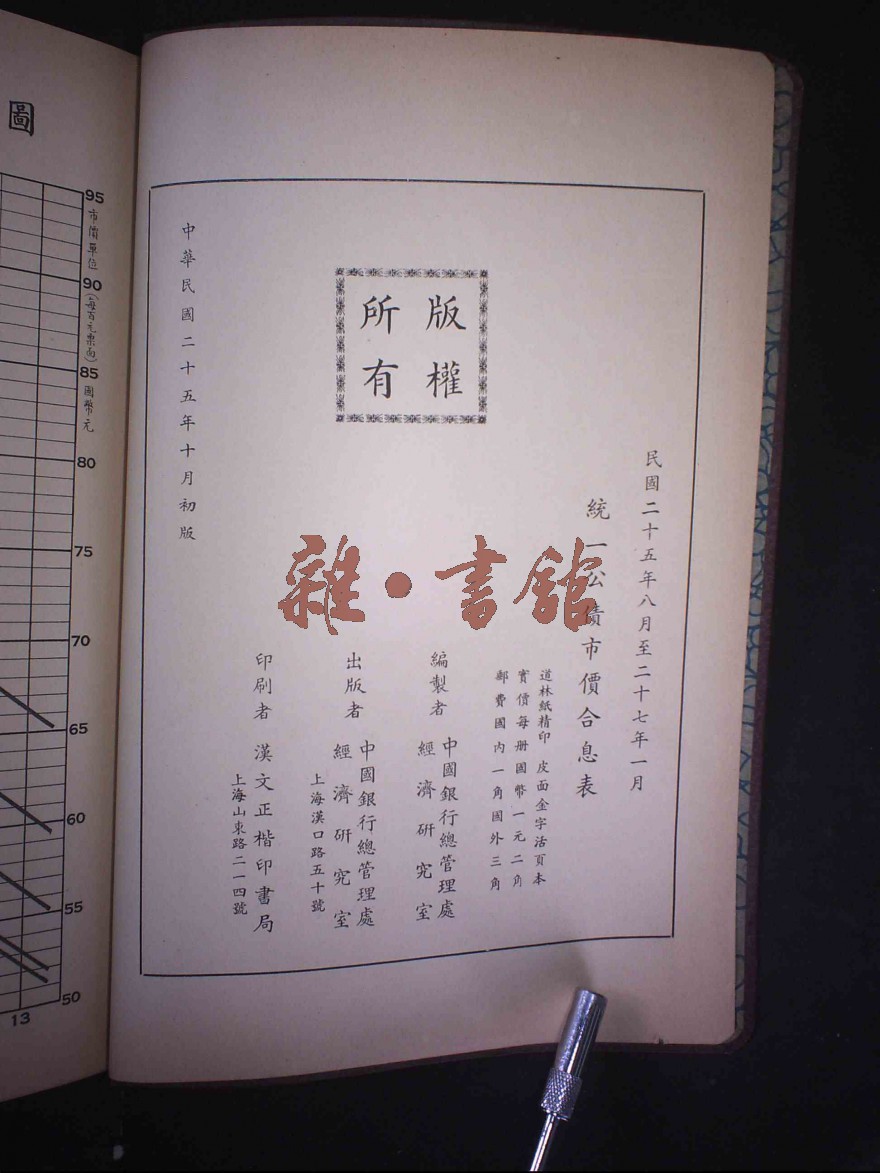 民國二十五年八月至二十七年一月
統一公債市價合息表
道林紙精印 皮面金字活頁本
實價每册國幣一元二角
郵費國內一角國外三角
編製者
中國銀行總管理處
經濟研究室
出版者
中國銀行總管理處
經濟研究室
上海漢口路五十號
印刷者
漢文正楷印書局
上海山東路二一四號
版權
所有
中華民國二十五年十月初版
雜·書館
圖
95
市價單位
90
(每百元票面)
85
國幣元
80
75
70
65
60
55
50
13